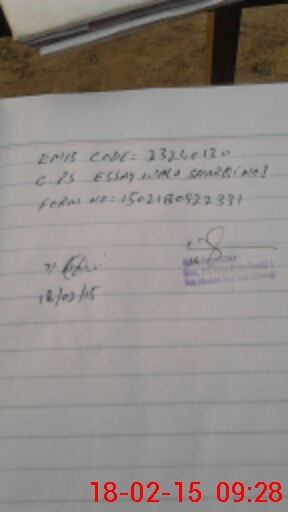 EMIS CODE = 33240130
G.P.S ESSAY WALA SHARQI NO 1
FORM NO = 1502180922331
18/02/15
18-02-15 09:28